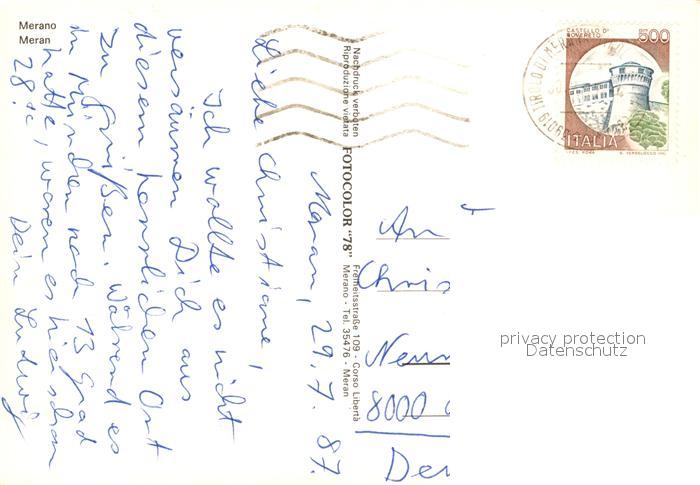 Merano
Meran
Meran, 29.7.87.
Liebe Christiane,
Ich wollte es nicht
versäumen Dich aus
diesem herrlichen Ort
zu grüßen. Während es
in München noch 13 Grad
hatte, waren es hier schon
28 °C
Dein Ludwig
Nachdruck verboten
Riproduzione vietata
FOTOCOLOR "78"
Freiheitsstraße 109 - Corso Libertà
Merano - Tel. 35476 - Meran
CASTELLO DI
ROVERETO
500
ITALIA
An
Chris
8000
privacy protection
Datenschutz